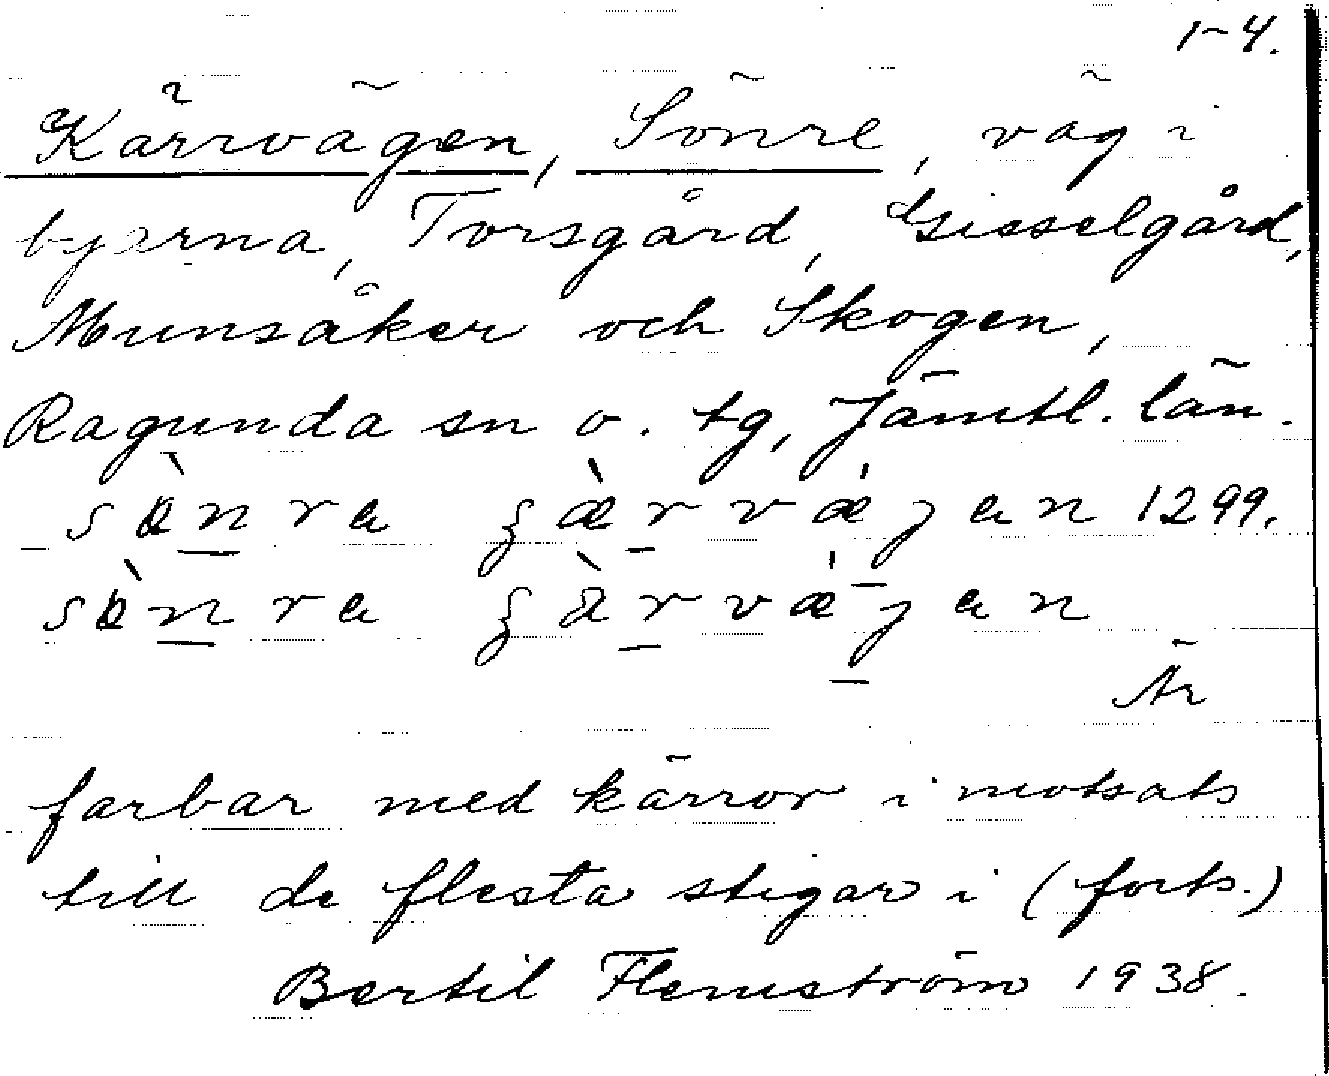 1-4.
Kärrvägen, Sönre, väg i
byarna, Torsgård, Gisselgård,
Munsåker och Skogen,
Ragunda sn o. tg, Jämtl. län.
1299.
Är
farbar med kärror i motsats
till de flesta stigar i (forts.)
Bertil Flemström 1938.